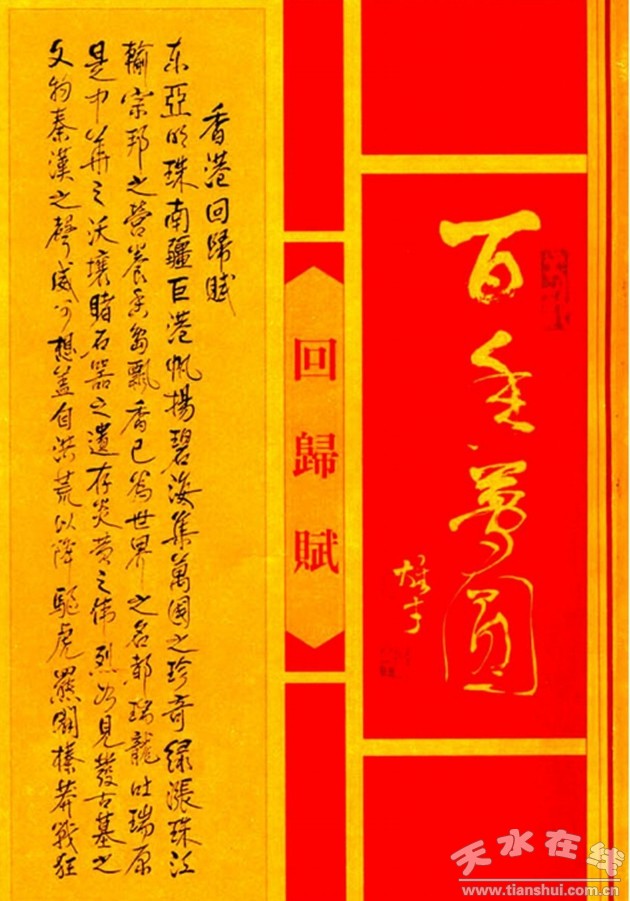 百年夢圓
回歸賦
香港回歸賦
东亞明珠南疆巨港帆揚碧海集萬國之珍奇绿漲珠江
輸宗邦之營養香島飄香已為世界之名都瑞龍吐瑞原
是中華之沃壤睹石器之遺存炎黄之偉烈如見發古墓之
文物秦漢之聲威可想盖自洪荒以降驅虎羆闢榛莽戰狂
天水在线
www.tianshui.com.cn